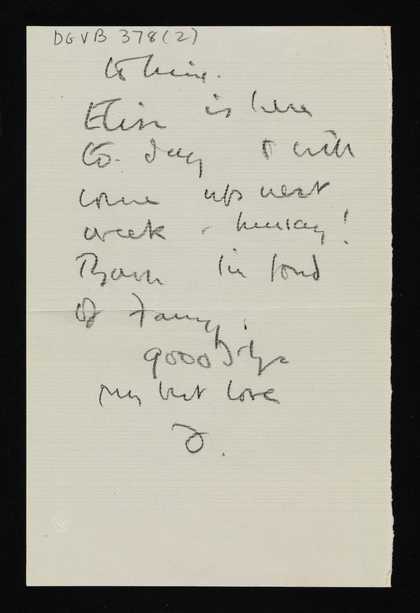 DGVB 378(2)
to him.
is here
to-day & will
come up next
week - hurray!
I'm fond
of Fanny.
goodbye
my best love
D.